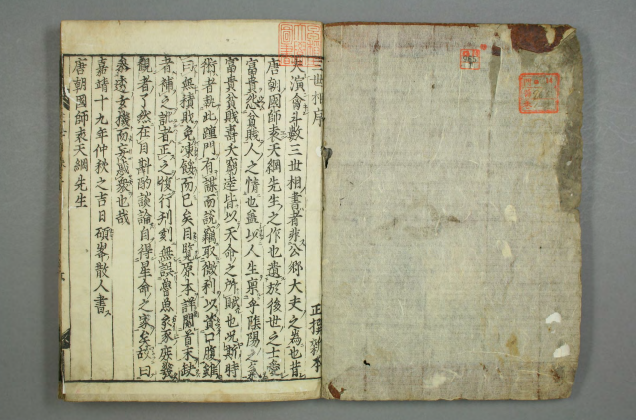 三世相序
夫演會斗數三世相書者非公卿大夫之為也昔
唐朝國師袁天綱先生之作也遺於後世之士
富貴然貧賤人之情也蓋以人生稟乎陰陽之
富貴貧賤壽夭窮達皆以天命之所賦也况斯時
術者執此踵門有謀而說竊取微利以資口腹
曰無積敗免凍餒而已矣目覽原本詳閱首末缺
者補之訛者正之復行刊刻無誤魯魚亥豕庶幾
觀者了然在目斟酌談論自得星命之家矣故曰
參透玄機而妄戲衆也哉
嘉靖十九年仲秋之吉日碩峯散人書
唐朝國師袁天綱先生